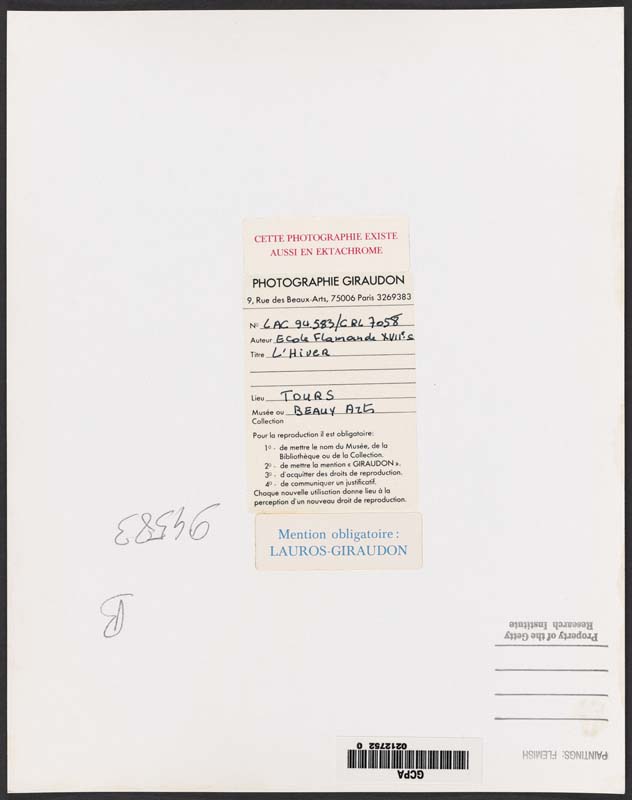 CETTE PHOTOGRAPHIE EXISTE
AUSSI EN EKTACHROME
PHOTOGRAPHIE GIRAUDON
9, Rue des Beaux-Arts, 75006 Paris 3269383
No LAC 94.583/CRL 7058
Auteur Ecole Flamande XVIIe s
Titre L'HIVER
Lieu TOURS
Musée ou BEAUX ARTS
Collection
Pour la reproduction il est obligatoire:
1o - de mettre le nom du Musée, de la
Bibliothèque ou de la Collection.
2o - de mettre la mention « GIRAUDON ».
3o - d'acquitter des droits de reproduction.
4o - de communiquer un justificatif.
Chaque nouvelle utilisation donne lieu à la
perception d'un nouveau droit de reproduction.
Mention obligatoire :
LAUROS-GIRAUDON
94583
B
Property of the Getty
Research Institute
PAINTINGS: FLEMISH
GCPA
0212752 0